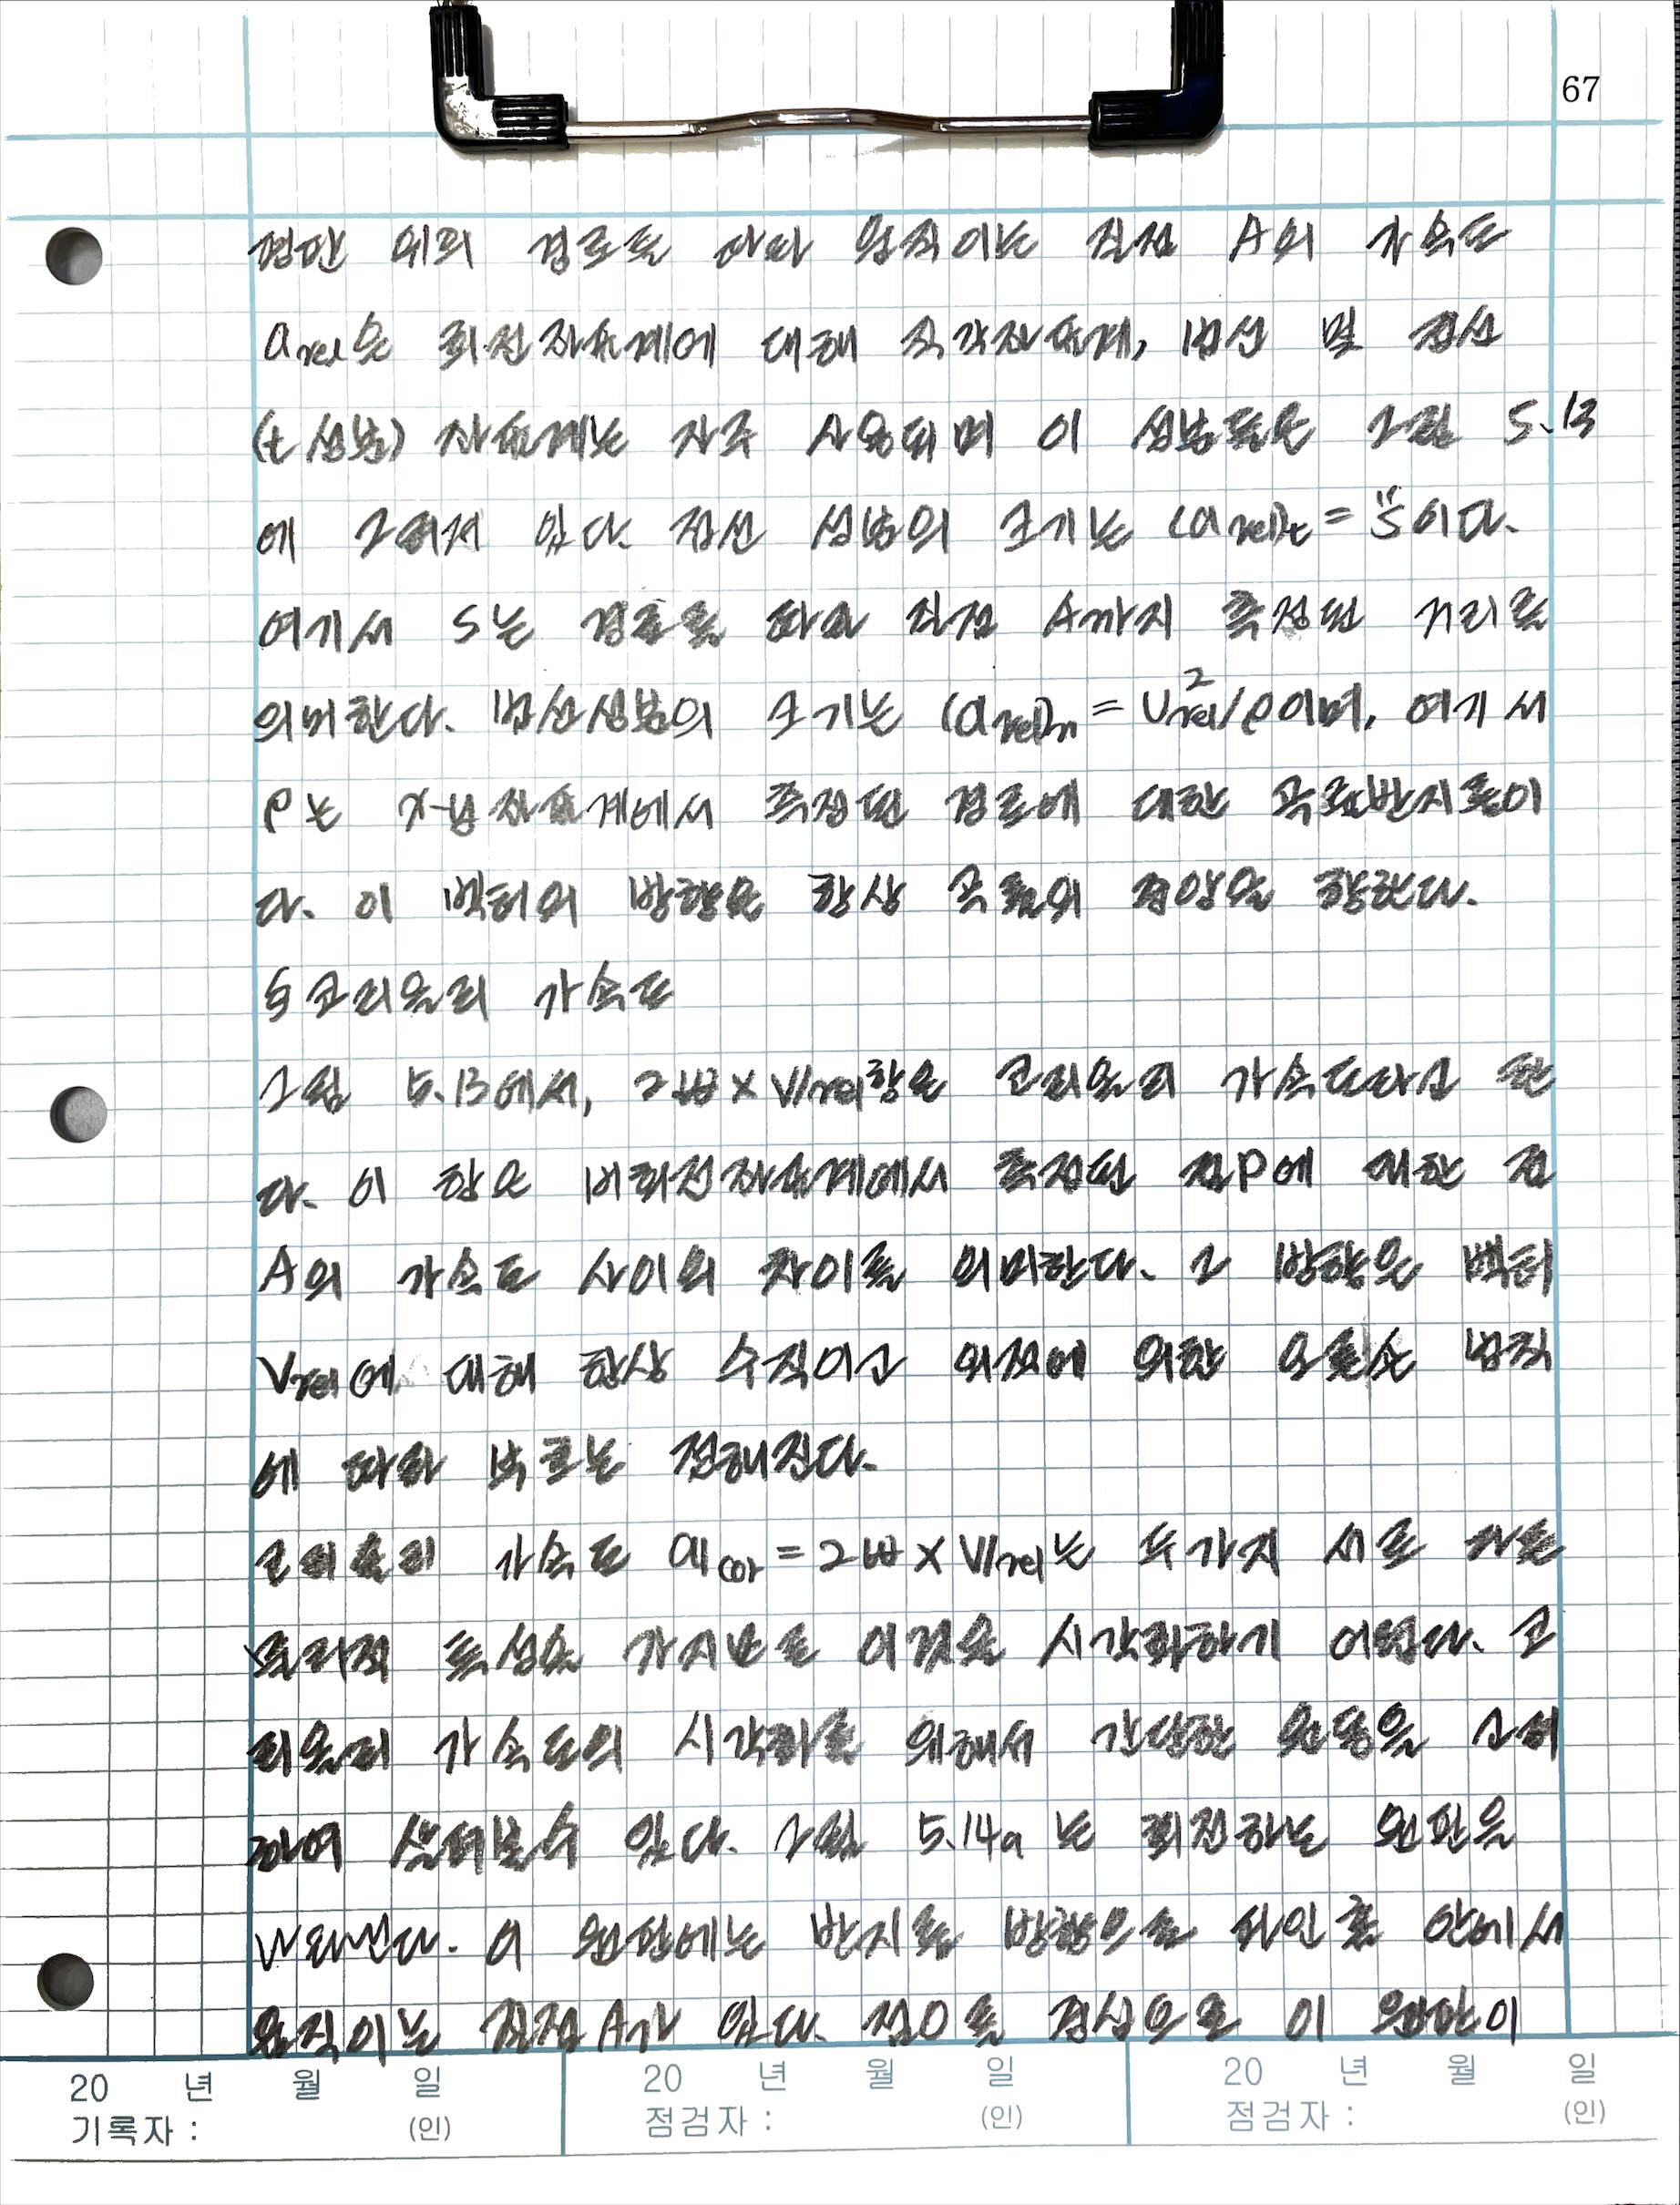 67
평면 위의 경로를 따라 움직이는 질점 A의 가속도
a_rel은 회전좌표계에 대해 직각좌표계, 법선 및 접선
(t성분) 좌표계는 자주 사용되며 이 성분들은 그림 5.13
에 그려져 있다. 접선 성분의 크기는 (a_rel)_t = s̈이다.
여기서 s는 경로를 따라 질점 A까지 측정된 거리를
의미한다. 법선성분의 크기는 (a_rel)_n = v²_rel/ρ이며, 여기서
ρ는 x-y 좌표계에서 측정된 경로에 대한 곡률반지름이
다. 이 벡터의 방향은 항상 곡률의 중앙을 향한다.
§코리올리 가속도
그림 5.13에서, 2ω × v_rel항은 코리올리 가속도라고 한
다. 이 항은 비회전좌표계에서 측정된 점P에 대한 점
A의 가속도 사이의 차이를 의미한다. 그 방향은 벡터
V_rel에 대해 항상 수직이고 외적에 의한 오른손 법칙
에 따라 부호는 정해진다.
코리올리 가속도 a_cor = 2ω × v_rel는 두가지 서로 다른
물리적 특성을 가지므로 이것을 시각화하기 어렵다. 코
리올리 가속도의 시각화를 위해서 간단한 운동을 고려
하여 살펴볼수 있다. 그림 5.14a 는 회전하는 원판을
나타낸다. 이 원판에는 반지름 방향으로 파인 홈 안에서
움직이는 질점 A가 있다. 점O를 중심으로 이 원판이
20 년 월 일 20 년 월 일 20 년 월 일
기록자 : (인) 점검자 : (인) 점검자 : (인)